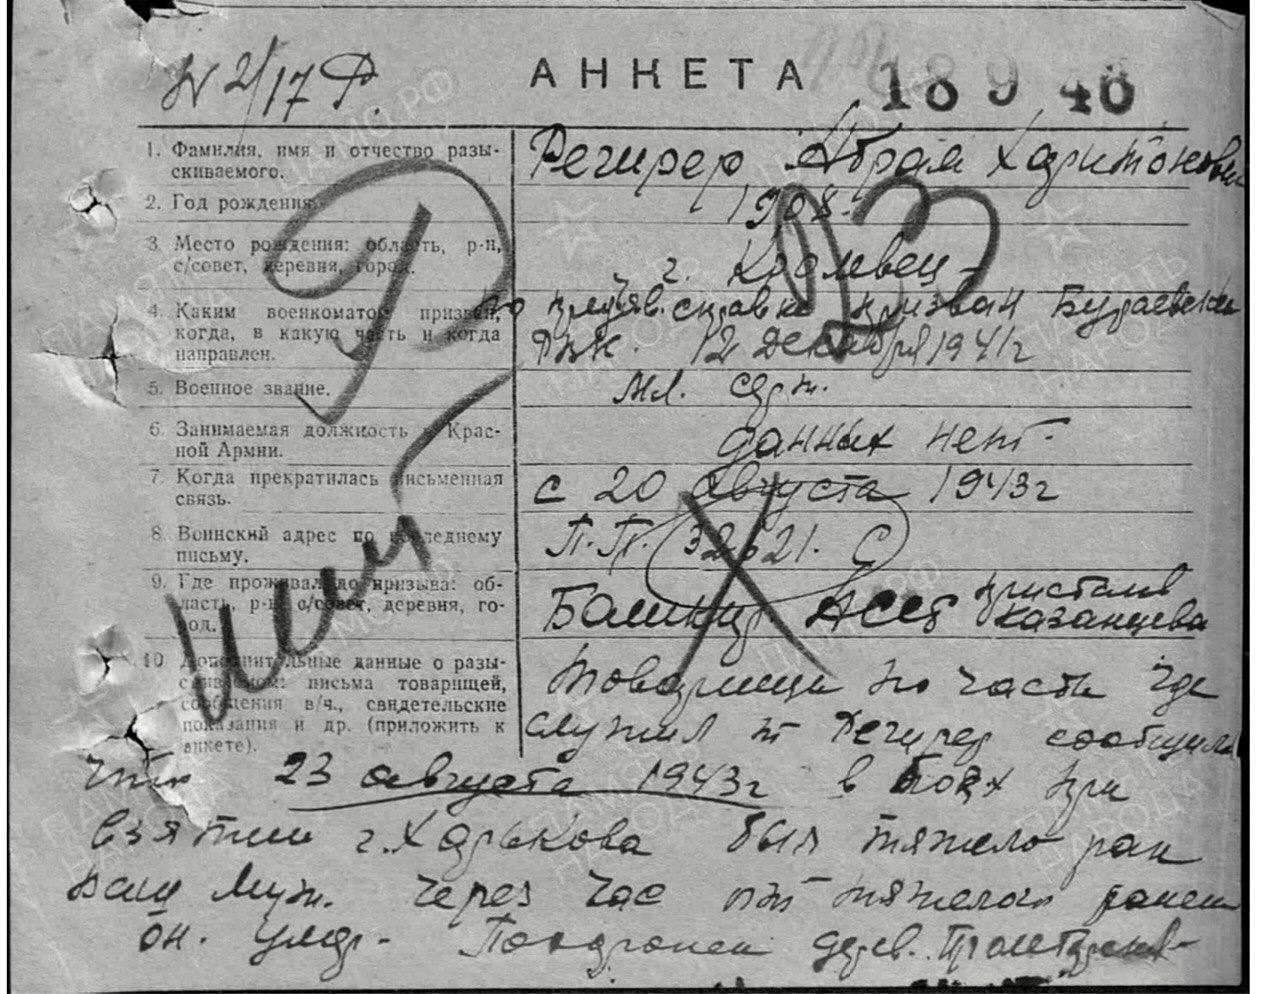 N 2/17 Р.
АНКЕТА 18946
1. Фамилия, имя и отчество разы-
скиваемого.
Регирер Абрам Харитонович
2. Год рождения.
1908.
3. Место рождения: область, р-н,
с/совет, деревня, город.
г. Кролевец
4. Каким военкоматом призван,
когда, в какую часть и когда
направлен.
справка призван Бураевским
РВК. 12 декабря 1941г
5. Военное звание.
мл. серж.
6. Занимаемая должность в Крас-
ной Армии.
данных нет.
7. Когда прекратилась письменная
связь.
с 20 августа 1943г
8. Воинский адрес по последнему
письму.
П.П. 32621. С
9. Где проживал до призыва: об-
ласть, р-н, с/совет, деревня, го-
род.
Башкир. АССР пристань
Казанцева
10 Дополнительные данные о разы-
скиваемом: письма товарищей,
сообщения в/ч., свидетельские
показания и др. (приложить к
анкете).
Товарищи по части где
служил т Регирер сообщили
что 23 августа 1943г в боях при
взятии г. Харькова был тяжело ран
Ваш муж. Через час от тяжелых ранен
он. умер. Похоронен дерев.
Р
93